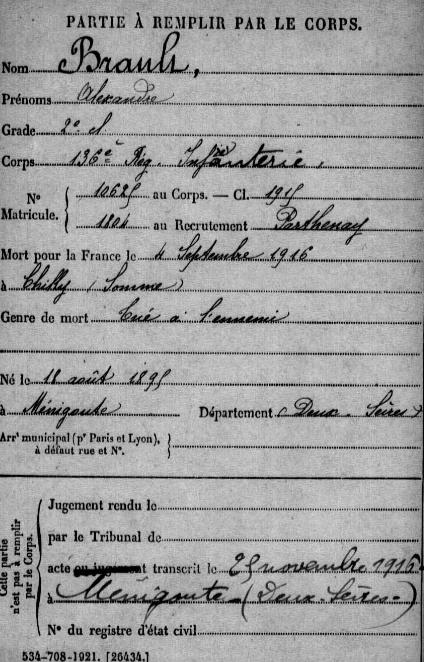 PARTIE À REMPLIR PAR LE CORPS.
Nom Brault,
Prénoms Alexandre
Grade 2e S
Corps 136e Rég. Infanterie.
No Matricule. { 10625 au Corps. — Cl. 1915
1804 au Recrutement Parthenay
Mort pour la France le 4 Septembre 1916
à Chilly (Somme)
Genre de mort Tué à l'ennemi
Né le 18 août 1895
à Ménigoute Département (Deux-Sèvres)
Arrt municipal (pr Paris et Lyon), }
à défaut rue et No.
Cette partie
n'est pas à remplir
par le Corps.
Jugement rendu le
par le Tribunal de
acte ou jugement transcrit le 25 novembre 1916
à Ménigoute (Deux-Sèvres)
No du registre d'état civil
534-708-1921. [26434.]